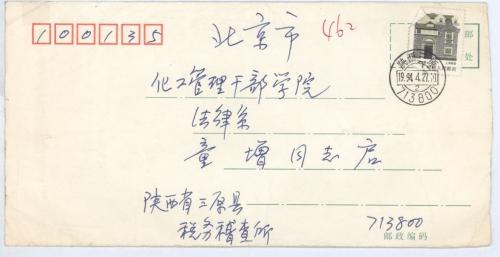 100135
北京市
462
邮
处
化工管理干部学院
法律系
童增同志启
陕西省三原县
税务稽查所
713800
邮政编码
1994.4.27.
2
713800